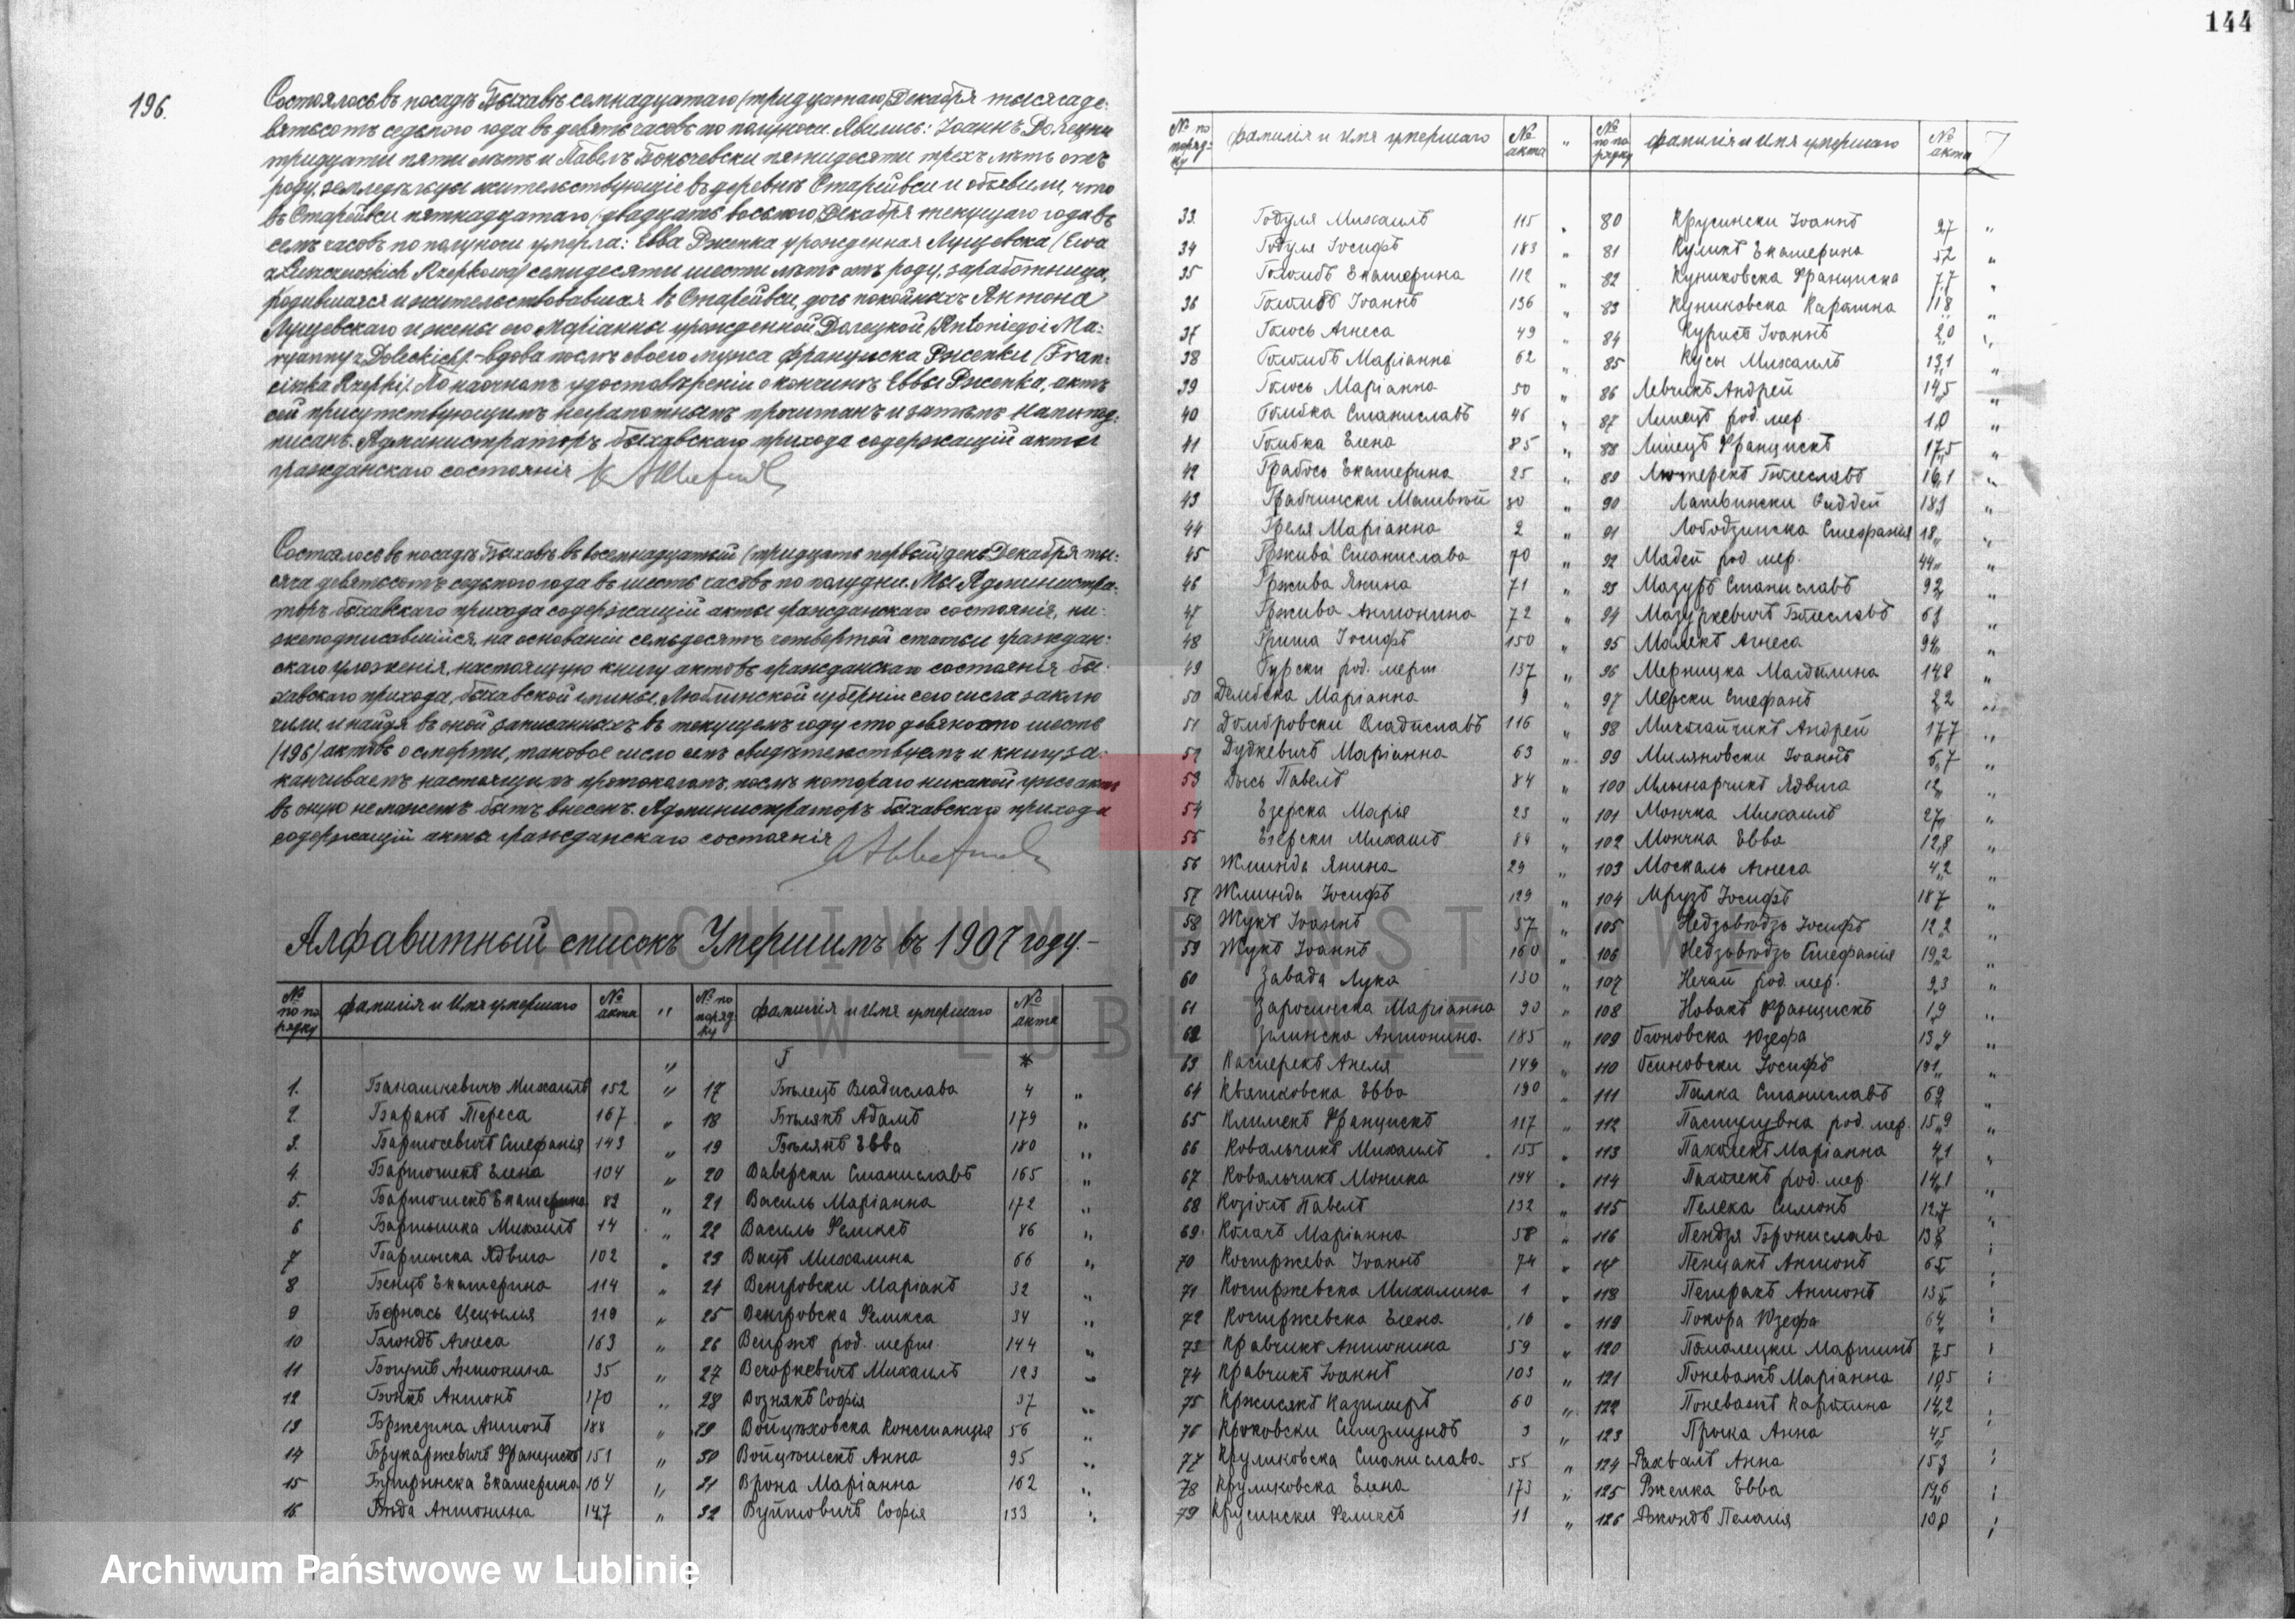 144
196.
Состоялось въ посадѣ Быхавѣ семнадцатаго (тридцатаго) Декабря тысяча де-
вятьсотъ седьмого года въ девять часовъ по полуночи. Явились: Іоаннъ Долецки
тридцати пяти лѣтъ и Павелъ пятидесяти трехъ лѣтъ отъ
роду, земледѣльцы жительствующіе въ деревнѣ Старейвси и объявили, что
въ Старейвси пятнадцатаго (двадцать восьмого) Декабря текущаго года въ
семь часовъ по полуночи умерла: Евва Рженка урожденная Лущевска (Ewa
z Luszczewskich Rzepkowa) семидесяти шести лѣтъ отъ роду, заработница,
родившаяся и жительствовавшая въ Старейвси, дочь покойныхъ Антона
Лущевскаго и жены его Маріанны урожденной Долецкой (Antoniego i Ma-
ryanny z Doleckich) - вдова послѣ своего мужа Франциска Рженки (Fran-
ciszka Rzepki). По наочномъ удостовѣреніи о кончинѣ Еввы Рженка, актъ
сей присутствующимъ неграмотнымъ прочитанъ и затѣмъ Нами под-
писанъ. Администраторъ быхавскаго прихода содержащій акты
гражданскаго состоянія
Состоялось въ посадѣ Быхавѣ въ восемнадцатый (тридцать первый) день Декабря ты-
сяча девятьсотъ седьмого года въ шесть часовъ по полудни. Мы Администра-
торъ быхавскаго прихода содержащій акты гражданскаго состоянія, ни-
жеподписавшійся, на основаніи семьдесятъ четвертой статьи граждан-
скаго уложенія, настоящую книгу актовъ гражданскаго состоянія бы-
хавскаго прихода, быхавской гмины, Люблинской губерніи сего числа заклю
чили, и найдя въ оной записанныхъ въ текущемъ году сто девяносто шесть
(196) актовъ о смерти, таковое число симъ свидѣтельствуемъ и книгу за-
канчиваемъ настоящимъ протоколомъ, послѣ котораго никакой уже актъ
въ оную не можетъ быть внесенъ. Администраторъ быхавскаго прихода
содержащій акты гражданскаго состоянія
Алфавитный списокъ Умершимъ въ 1907 году.-
№ по порядку фамилія и Имя умершаго № акта " № по порядку фамилія и Имя умершаго № акта
1. Банашкевичъ Михаилъ 152 " 17 Бѣлецъ Владислава 4 "
2. Баранъ Тереса 167 " 18 Бѣлякъ Адамъ 179 "
3. Бартосевичъ Стефанія 143 " 19 Бѣлякъ Евва 180 "
4. Бартошекъ Елена 104 " 20 Ваверски Станиславъ 165 "
5. Бартошекъ Екатерина 82 " 21 Василь Маріанна 172 "
6 Михаилъ 14 " 22 Василь Феликсъ 86 "
7 Ядвига 102 " 23 Вацъ Михалина 66 "
8 Бенцъ Екатерина 114 " 24 Венгровски Маріанъ 32 "
9 Бернась Цецылія 119 " 25 Венгровска Феликса 34 "
10 Блондъ Агнеса 163 " 26 род. мерт. 144 "
11 Антонина 35 " 27 Вечоркевичъ Михаилъ 193 "
12 Бонкъ Антонъ 170 " 28 Вознякъ Софія 37 "
13 Бржезина Антонъ 188 " 29 Войцѣховска Констанція 56 "
14 Брукаржевичъ Францискъ 151 " 30 Войцюшекъ Анна 95 "
15 Бутрынска Екатерина 164 " 31 Врона Маріанна 162 "
16 Бѣда Антонина 147 " 32 Вуйтовичъ Софія 133 "
№ по порядку фамилія и Имя умершаго № акта " № по порядку фамилія и Имя умершаго № акта
33. Годуля Михаилъ 115 " 80 Крусински Іоаннъ 97 "
34 Іосифъ 183 " 81 Куликъ Екатерина 52 "
35 Голомбъ Екатерина 112 " 82 Куниковска Франциска 77 "
36 Голомбъ Іоаннъ 136 " 83 Куниковска Каролина 118 "
37 Голось Агнеса 49 " 84 Іоаннъ 20 "
38 Голомбъ Маріанна 62 " 85 Кусы Михаилъ 131 "
39 Голось Маріанна 50 " 86 Левчикъ Андрей 145 "
40 Голибка Станиславъ 46 " 87 Липецъ род. мер. 10 "
41 Голибка Елена 85 " 88 Липецъ Францискъ 175 "
42 Грабось Екатерина 25 " 89 Лютерекъ Болеславъ 161 "
43 Грабчински Матвѣй 30 " 90 189 "
44 Греля Маріанна 2 " 91 Лободзинска Стефанія 18 "
45 Гржива Станислава 70 " 92 Мадей род. мер. 44 "
46 Гржива Янина 71 " 93 Мазуръ Станиславъ 92 "
47 Гржива Антонина 72 " 94 Мазуркевичъ Болеславъ 61 "
48 Гриша Іосифъ 150 " 95 Малекъ Агнеса 94 "
49 Гурски род. мерт. 137 " 96 Мерницка Магдалина 148 "
50 Дембска Маріанна 9 " 97 Мерски Стефанъ 22 "
51 Домбровски Владиславъ 116 " 98 Миколайчикъ Андрей 177 "
52 Дудкевичъ Маріанна 63 " 99 Миляновски Іоаннъ 67 "
53 Дысь Павелъ 84 " 100 Млынарчикъ Ядвига 12 "
54 Езерска Марія 23 " 101 Мончка Михаилъ 27 "
55 Езерски Михаилъ 89 " 102 Мончка Евва 128 "
56 Жминда Янина 29 " 103 Москаль Агнеса 42 "
57 Жминда Іосифъ 129 " 104 Мрузъ Іосифъ 187 "
58 Жукъ Іоаннъ 57 " 105 Недзьвѣдзь Іосифъ 122 "
59 Жукъ Іоаннъ 160 " 106 Недзьвѣдзь Стефанія 192 "
60 Завада Лука 130 " 107 Нечай род. мер. 93 "
61 Заросинска Маріанна 90 " 108 Новакъ Францискъ 19 "
62 Антонина 185 " 109 Огоновска Юзефа 139 "
63 Касперекъ Анеля 149 " 110 Осиновски Іосифъ 191 "
64 Квятковска Евва 190 " 111 Палка Станиславъ 69 "
65 Климекъ Францискъ 117 " 112 род. мер. 159 "
66 Ковальчикъ Михаилъ 155 " 113 Пахолекъ Маріанна 41 "
67 Ковальчикъ Моника 194 " 114 Пахолекъ род. мер. 141 "
68 Козіолъ Павелъ 132 " 115 Пелека Симонъ 127 "
69. Маріанна 58 " 116 Пендзя Бронислава 138 "
70 Костржева Іоаннъ 74 " 117 Пенцакъ Антонъ 65 "
71 Костржевска Михалина 1 " 118 Петракъ Антонъ 135 "
72 Костржевска Елена 16 " 119 Покора Юзефа 64 "
73 Кравчикъ Антонина 59 " 120 Помалецки Мартинъ 75 "
74 Кравчикъ Іоаннъ 103 " 121 Маріанна 105 "
75 Кржисякъ Казимиръ 60 " 122 Каролина 142 "
76 Кроковски Сигизмундъ 3 " 123 Прыка Анна 45 "
77 Круликовска Станислава 55 " 124 Рахвалъ Анна 153 "
78 Круликовска Елена 173 " 125 Рженка Евва 196 "
79 Крусински Феликсъ 11 " 126 Ржондъ Пелагія 108 "
ARCHIWUM PAŃSTWOWE
W LUBLINIE
Archiwum Państwowe w Lublinie